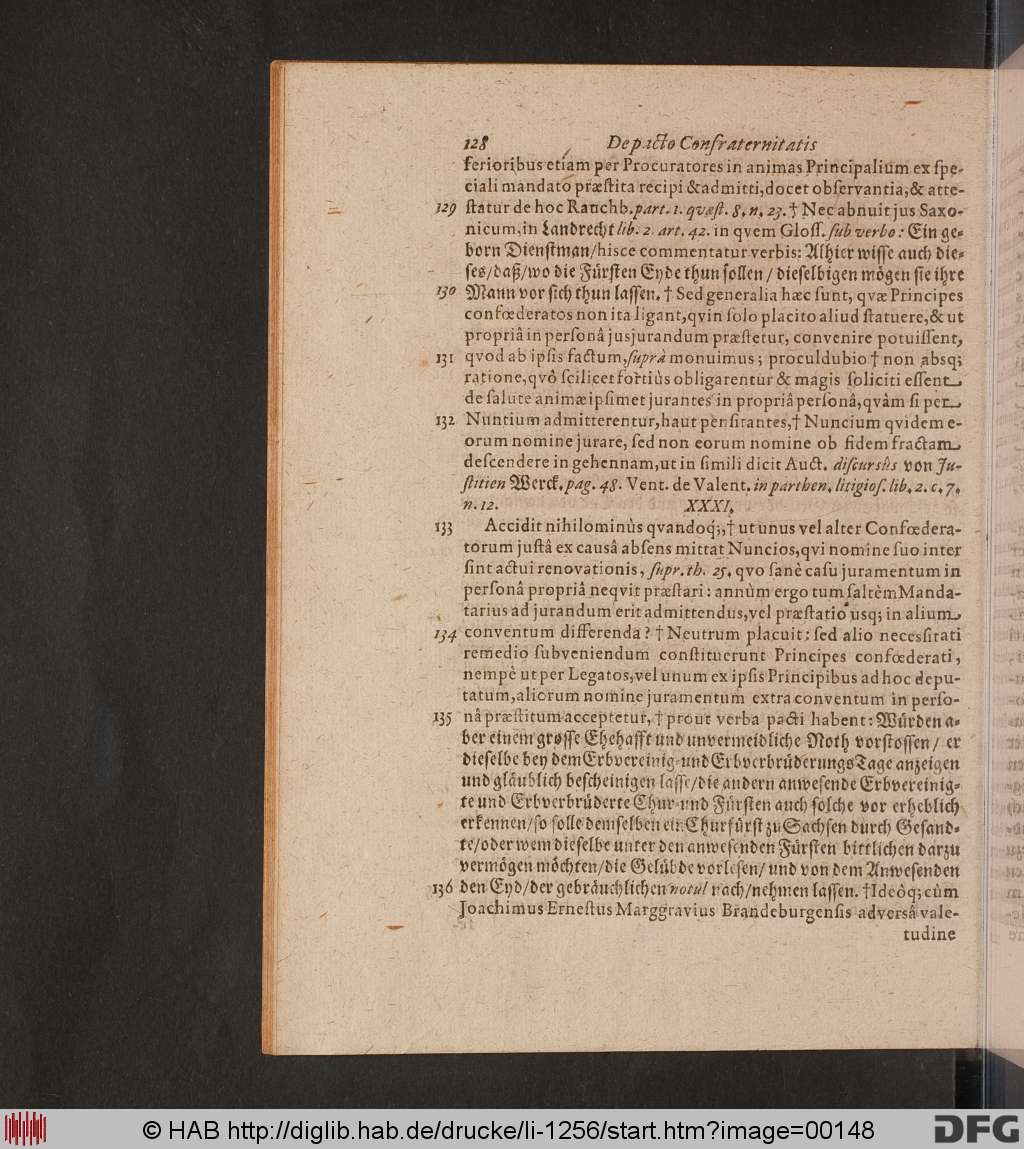 128 De pacto Confraternitatis
ferioribus etiam per Procuratores in animas Principalium ex ſpe-
ciali mandato præſtita recipi & admitti, docet obſervantia, & atte-
129 ſtatur de hoc Rauchb. part. 1. quæſt. 8. n. 23. † Nec abnuit jus Saxo-
nicum, in Landrecht lib. 2. art. 42. in qvem Gloſſ. ſub verbo: Ein ge-
born Dienſtman/ hisce commentatur verbis: Alhier wiſſe auch die-
ſes/ daß/ wo die Fürſten Eyde thun ſollen/ dieſelbigen mögen ſie ihre
130 Mann vor ſich thun laſſen. † Sed generalia hæc ſunt, qvæ Principes
confœderatos non ita ligant, qvin ſolo placito aliud ſtatuere, & ut
propriâ in perſonâ jusjurandum præſtetur, convenire potuiſſent,
131 qvod ab ipſis factum, ſuprà monuimus; proculdubio † non absq;
ratione, qvô ſcilicet fortiùs obligarentur & magis ſoliciti eſſent
de ſalute animæ ipſimet jurantes in propriâ perſonâ, qvàm ſi per
132 Nuntium admitterentur, haut penſitantes, † Nuncium qvidem e-
orum nomine jurare, ſed non eorum nomine ob fidem fractam
deſcendere in gehennam, ut in ſimili dicit Auct. diſcursûs von Ju-
ſtitien Werck. pag. 48. Vent. de Valent. in parthen. litigioſ. lib. 2. c. 7.
n. 12. XXXI.
133 Accidit nihilominùs qvandoq;, † ut unus vel alter Confœdera-
torum juſtâ ex causâ abſens mittat Nuncios, qvi nomine ſuo inter
ſint actui renovationis, ſupr. th. 25. qvo ſanè caſu juramentum in
perſonâ propriâ neqvit præſtari: annùm ergo tum ſaltèm Manda-
tarius ad jurandum erit admittendus, vel præſtatio usq; in alium
134 conventum differenda? † Neutrum placuit: ſed alio necesſitati
remedio ſubveniendum conſtituerunt Principes confœderati,
nempè ut per Legatos, vel unum ex ipſis Principibus ad hoc depu-
tatum, aliorum nomine juramentum extra conventum in perſo-
135 nâ præſtitum acceptetur, † prout verba pacti habent: Würden a-
ber einem groſſe Ehehafft und unvermeidliche Noth vorſtoſſen/ er
dieſelbe bey dem Erbvereinig- und Erbverbrüderungs Tage anzeigen
und gläublich beſcheinigen laſſe/ die andern anweſende Erbvereinig-
te und Erbverbrüderte Chur- und Fürſten auch ſolche vor erheblich
erkennen/ ſo ſolle demſelben ein Churfürſt zu Sachſen durch Geſand-
te/ oder wem dieſelbe unter den anweſenden Fürſten bittlichen darzu
vermögen möchten/ die Gelübde vorleſen/ und von dem Anweſenden
136 den Eyd/ der gebräuchlichen notul nach/ nehmen laſſen. † Ideôq; cùm
Joachimus Erneſtus Marggravius Brandeburgenſis adversâ vale-
tudine
© HAB http://diglib.hab.de/drucke/li-1256/start.htm?image=00148
DFG